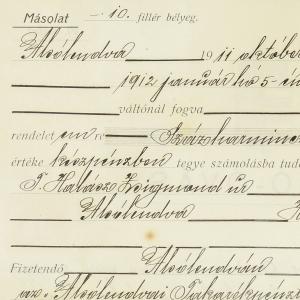 Másolat – 10. fillér bélyeg.
Alsólendva 19 11 október
1912 január hó 5-én
váltónál fogva
rendelet em re Százharmincz
értéke készpénzben tegye számolásba tud
T. Halász Zsigmond úr
Alsólendva
Fizetendő Alsólendván
Alsólendvai Takarékpénzt